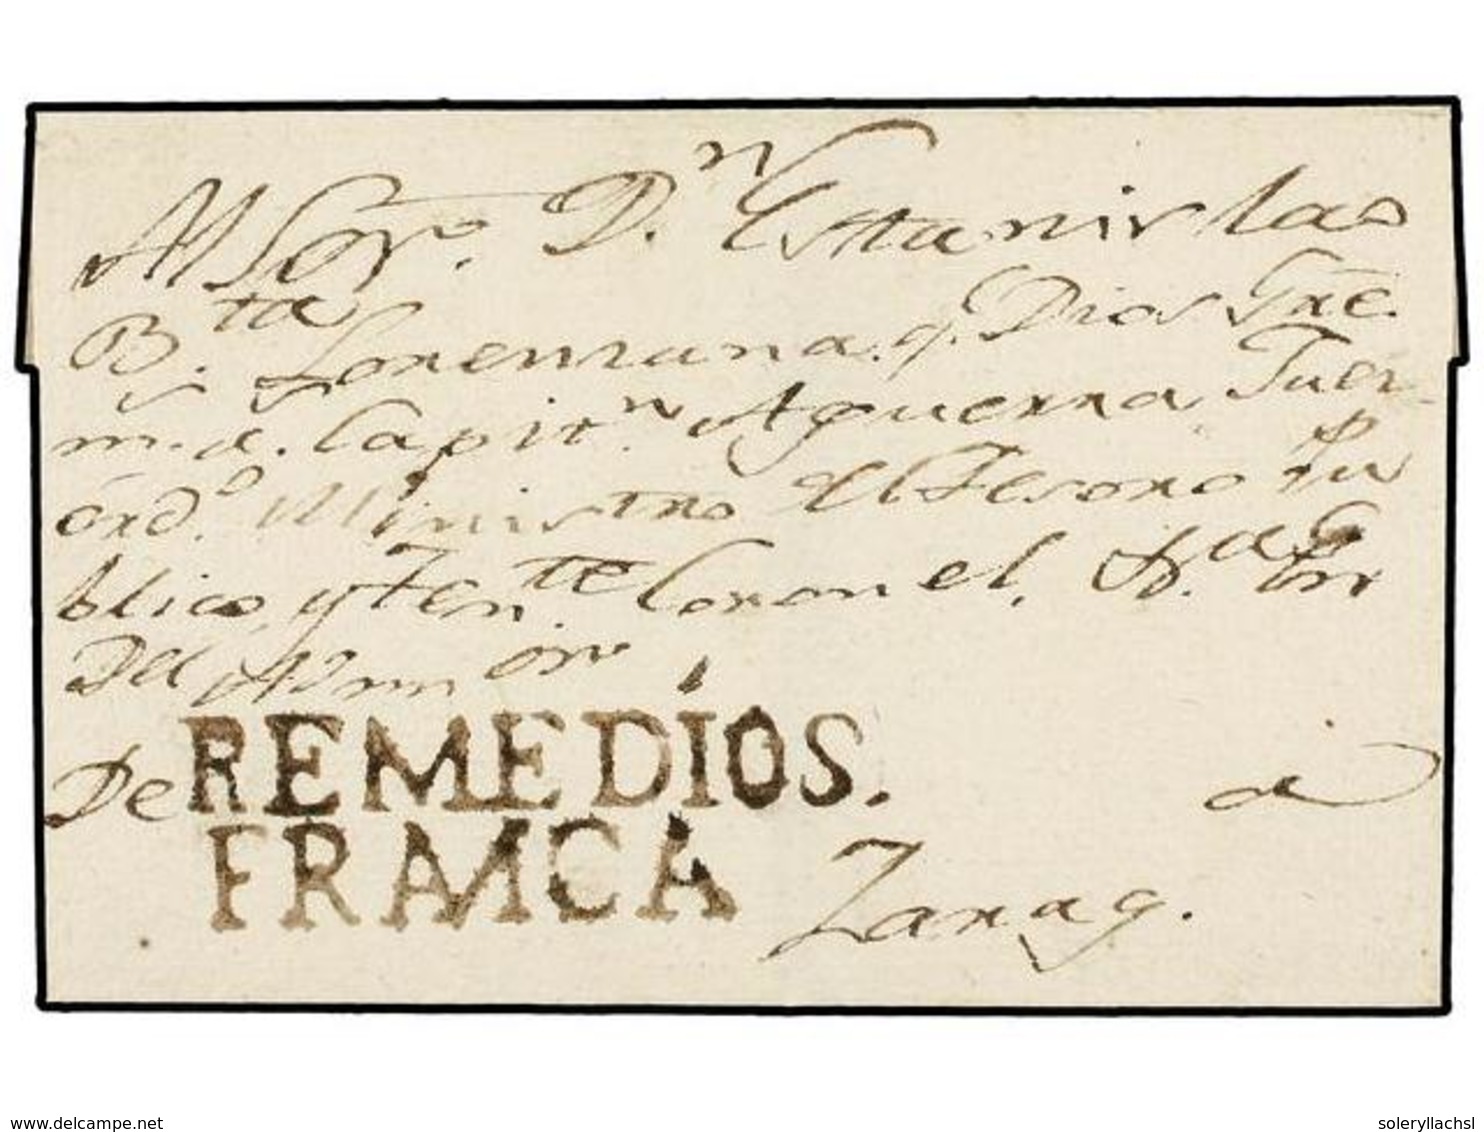 Al Sor. Dn. Estanislao
Bta. Lorenzana. q. Dios Gue.
m. a. Capitn. Aguerra, Juez
ordo. Ministro del Tesoro Pu
blico, y Tente. Coronel,
Del
De REMEDIOS. a
FRANCA Zarag.
delcampe.net
soleryllachsl